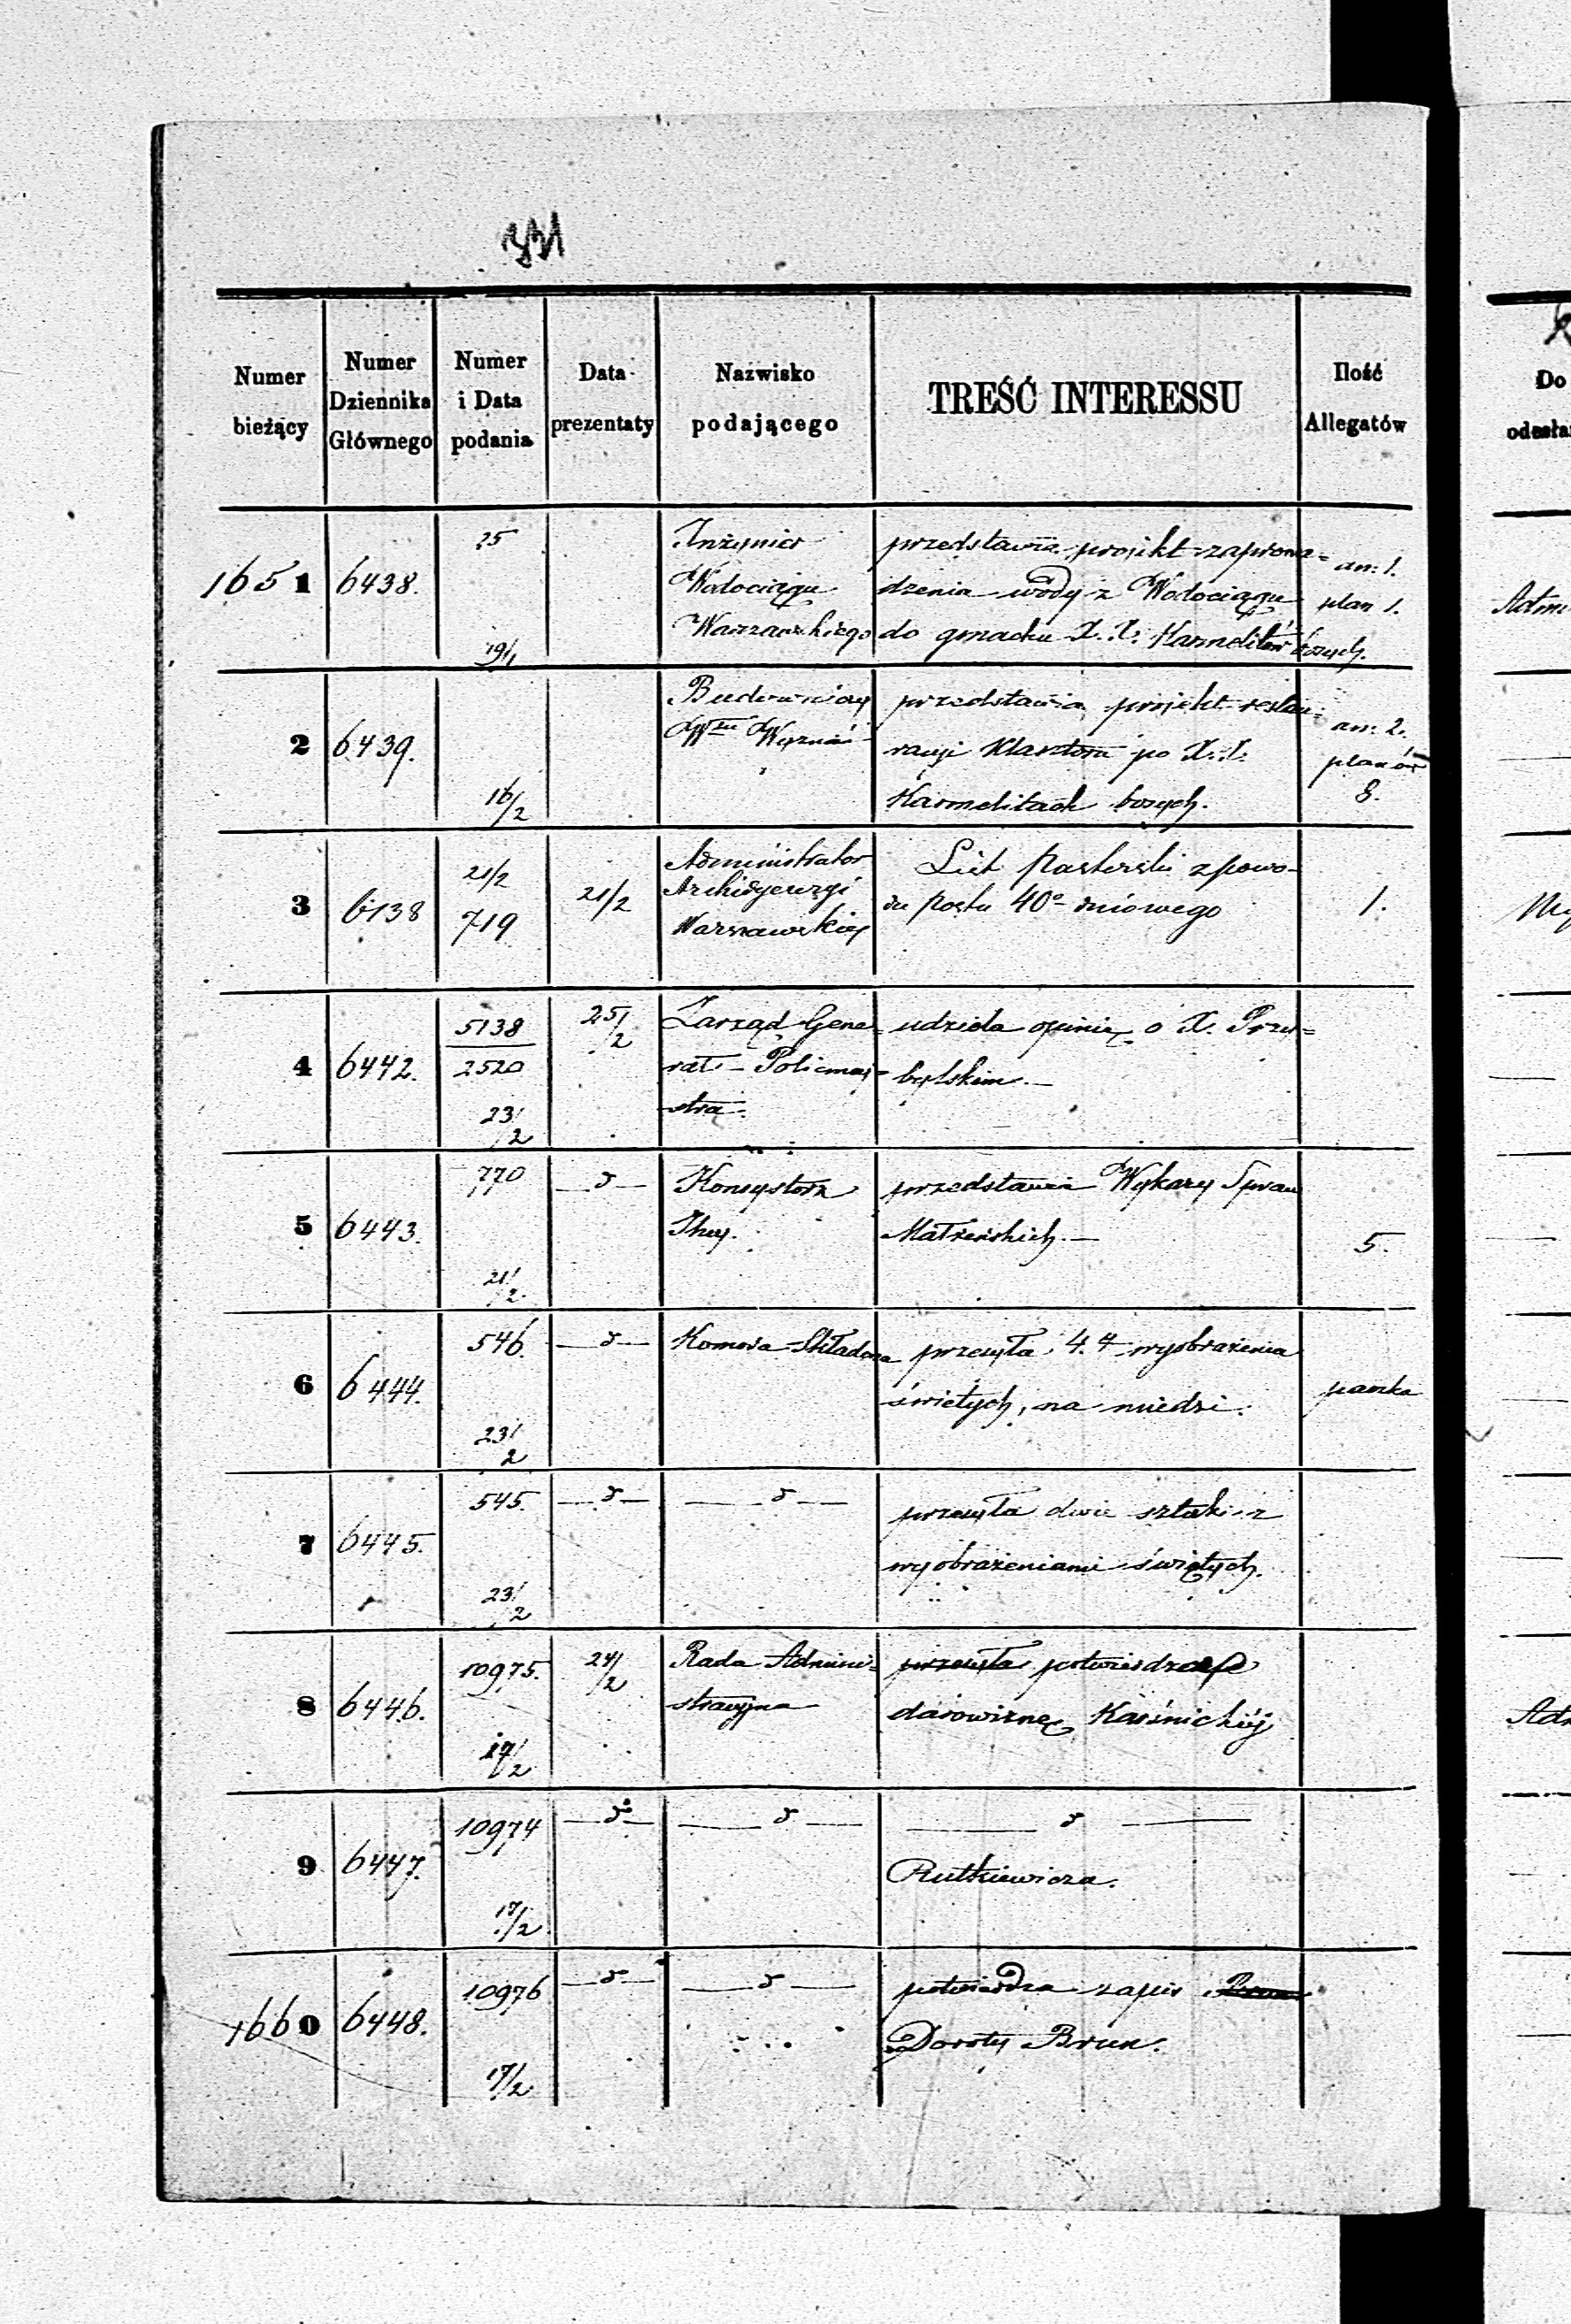 Numer bieżący
Numer Dziennika Głównego
Numer i Data podania
Data prezentaty
Nazwisko podającego
TREŚĆ INTERESSU
Ilość Allegatów
Do
1651
6438.
25
19/1
Inżynier
Wodociągu
Warszawskiego
przedstawia projekt zaprowa=
dzenia wody z Wodociągu
do gmachu X.X. Karmelitów bosych.
an: 1.
plan 1.
2
6439.
16/2
Budowniczy
przedstawia projekt restau-
racyi Klasztoru po X.X.
Karmelitach bosych.
an: 2.
planów
8.
3
6138
21/2
719
21/2
Administrator
Archidyecezyi
Warszawskiey
List Pasterski z powo-
du Postu 40o dniowego
1.
4
6442.
5138
2520
23/2
25/2
Zarząd Gene=
rał-Policmaj=
stra.
udziela opinię o X. Przy=
bylskim.—
5
6443.
770
21/2
—d—
Konsystorz
Thuy.
przedstawia Wykazy Spraw
Małżeńskich.—
5.
6
6444.
546.
23/2
—d—
Komora Składowa
przesyła 4. wyobrażenia
świętych, na miedzi.
paczka
7
6445.
545.
23/2
—d—
—d—
przesyła dwie sztuki z
wyobrażeniami świętych.
8
6446.
10975.
17/2
24/2
Rada Admini=
stracyjna
przesyła potwierdza
darowiznę
9
6447.
10974
17/2
—d—
—d—
—d—
Rutkiewicza.
1660
6448.
10976
17/2
—d—
—d—
potwierdza zapis
Doroty Brun.